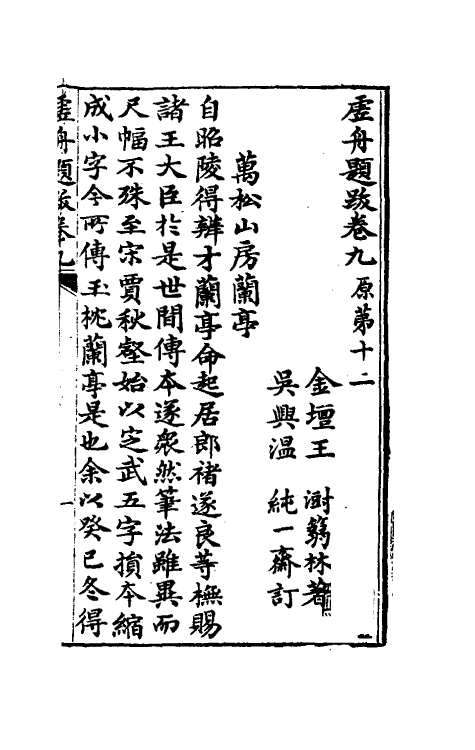 虛舟題跋卷九 原第十二
金壇王 澍篛林著
吳興温 純一齋訂
萬松山房蘭亭
自昭陵得辨才蘭亭命起居郎褚遂良等橅賜
諸王大臣於是世間傳本遂衆然筆法雖異而
尺幅不殊至宋賈秋壑始以定武五字損本縮
成小字今所傳玉枕蘭亭是也余以癸巳冬得
虛舟題跋卷九
一